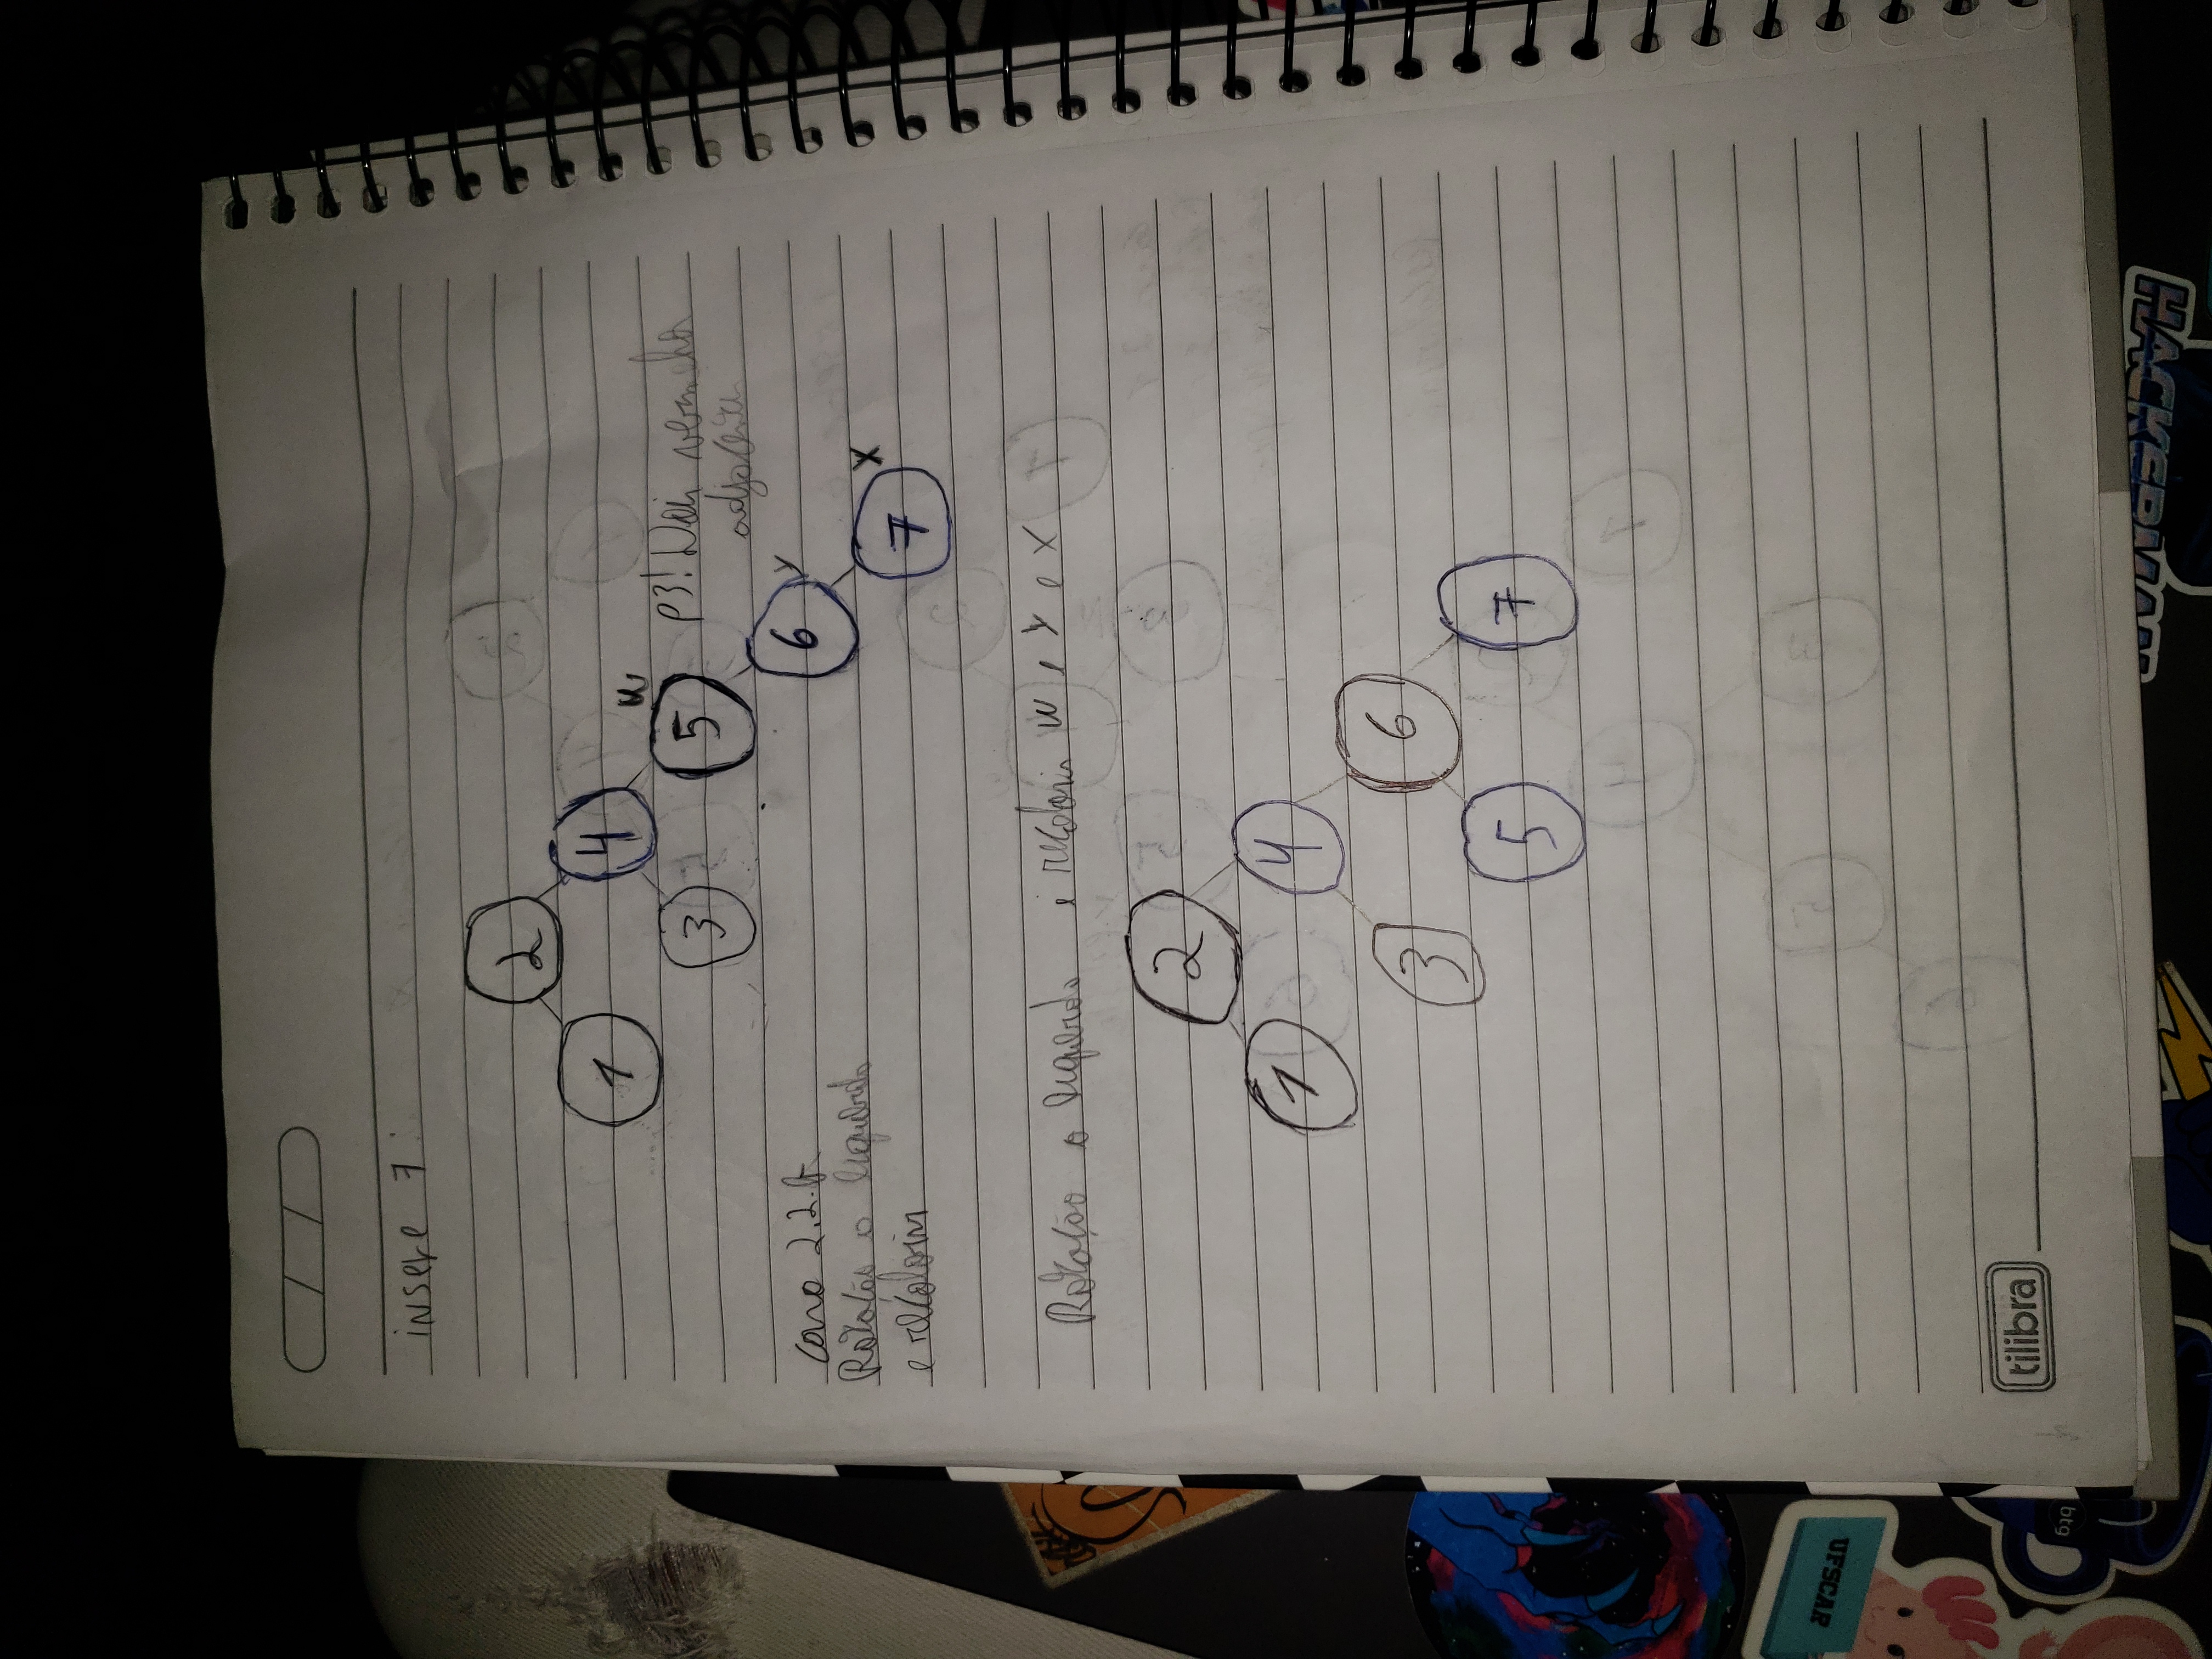 insere 7:
2
1
4
w
3
5
P3! Dois vermelhos
adjacentes
6 y
caso 2.2.A
Rotação a esquerda
e recolorir
7 x
Rotação a esquerda e recolorir w e y e x
2
1
4
3
6
5
7
UFSCAR
btg
tilibra
HACKERMAN